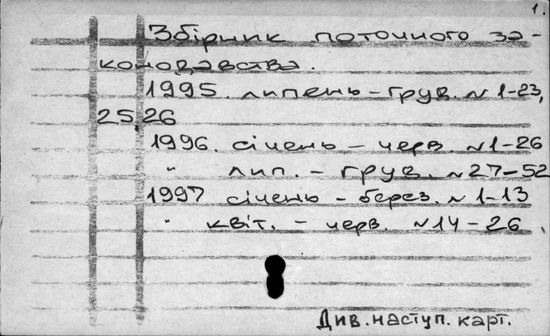 1.
Збірник поточного за-
конодавства.
1995. липень – груд. N 1–23,
25, 26
1996. січень – черв. N 1–26
" лип. – груд. N 27–52
1997 січень – берез. N 1–13
" квіт. – черв. N 14–26.
Див. наступ. карт.